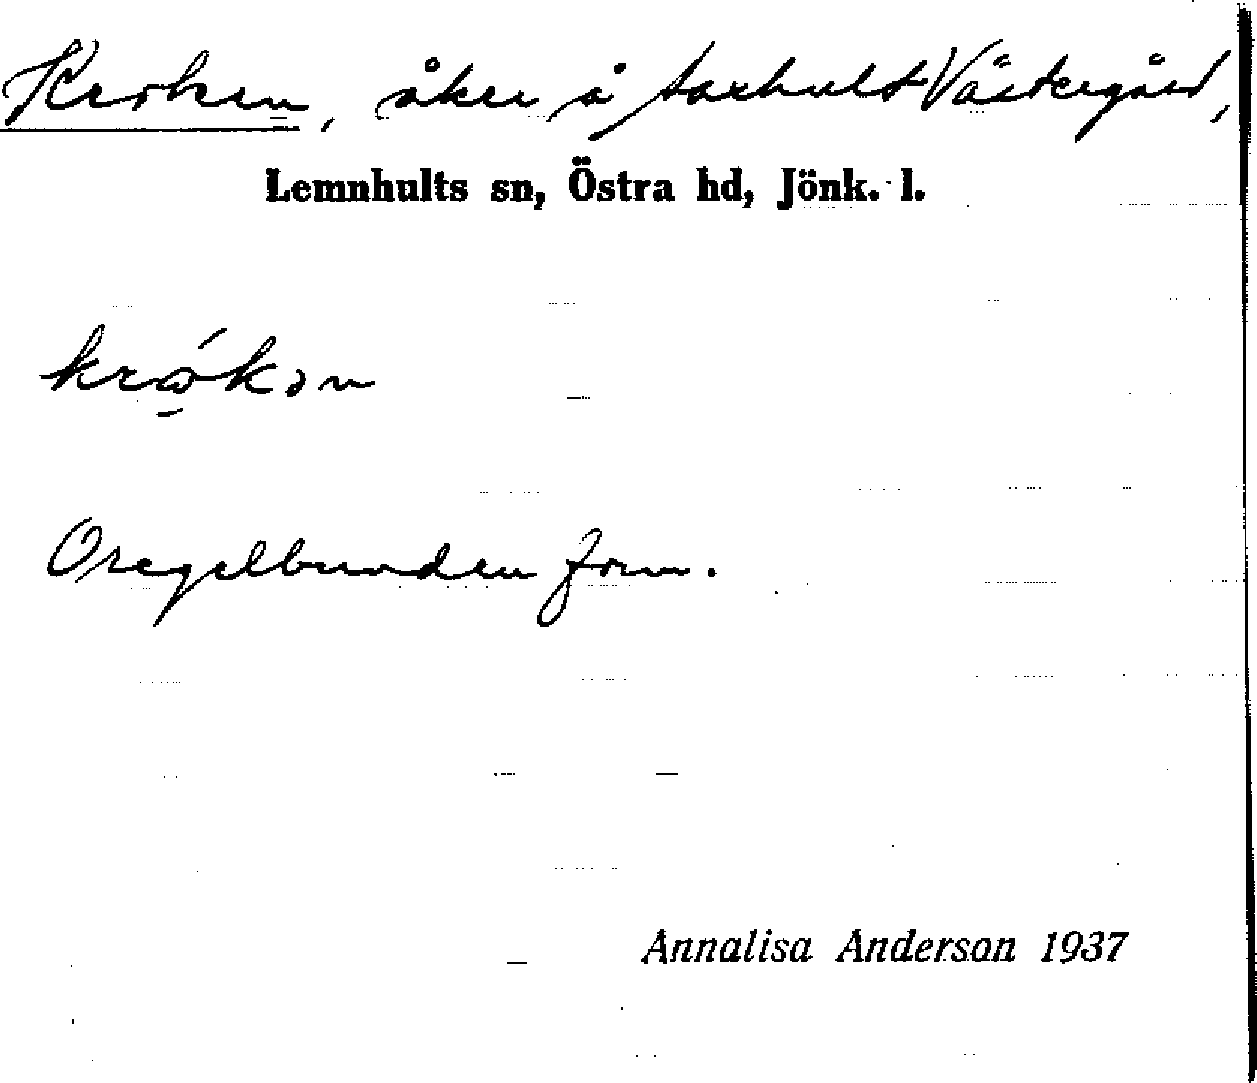 Kroken, åker å Västergård,
Lemnhults sn, Östra hd, Jönk. l.
krώ̠kən
Oregelbunden form.
Annalisa Anderson 1937